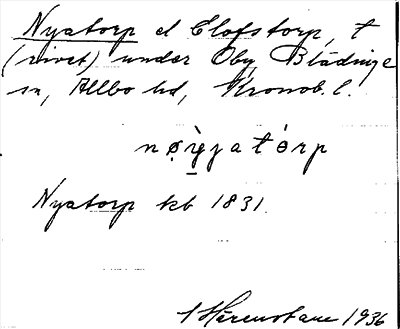 Nyatorp el Elofstorp, t
(rivet) under Oby, Blädinge
sn, Allbo hd, Kronob. l.
nø̣ỳyatòrp
Nyatorp kb 1831.
1936